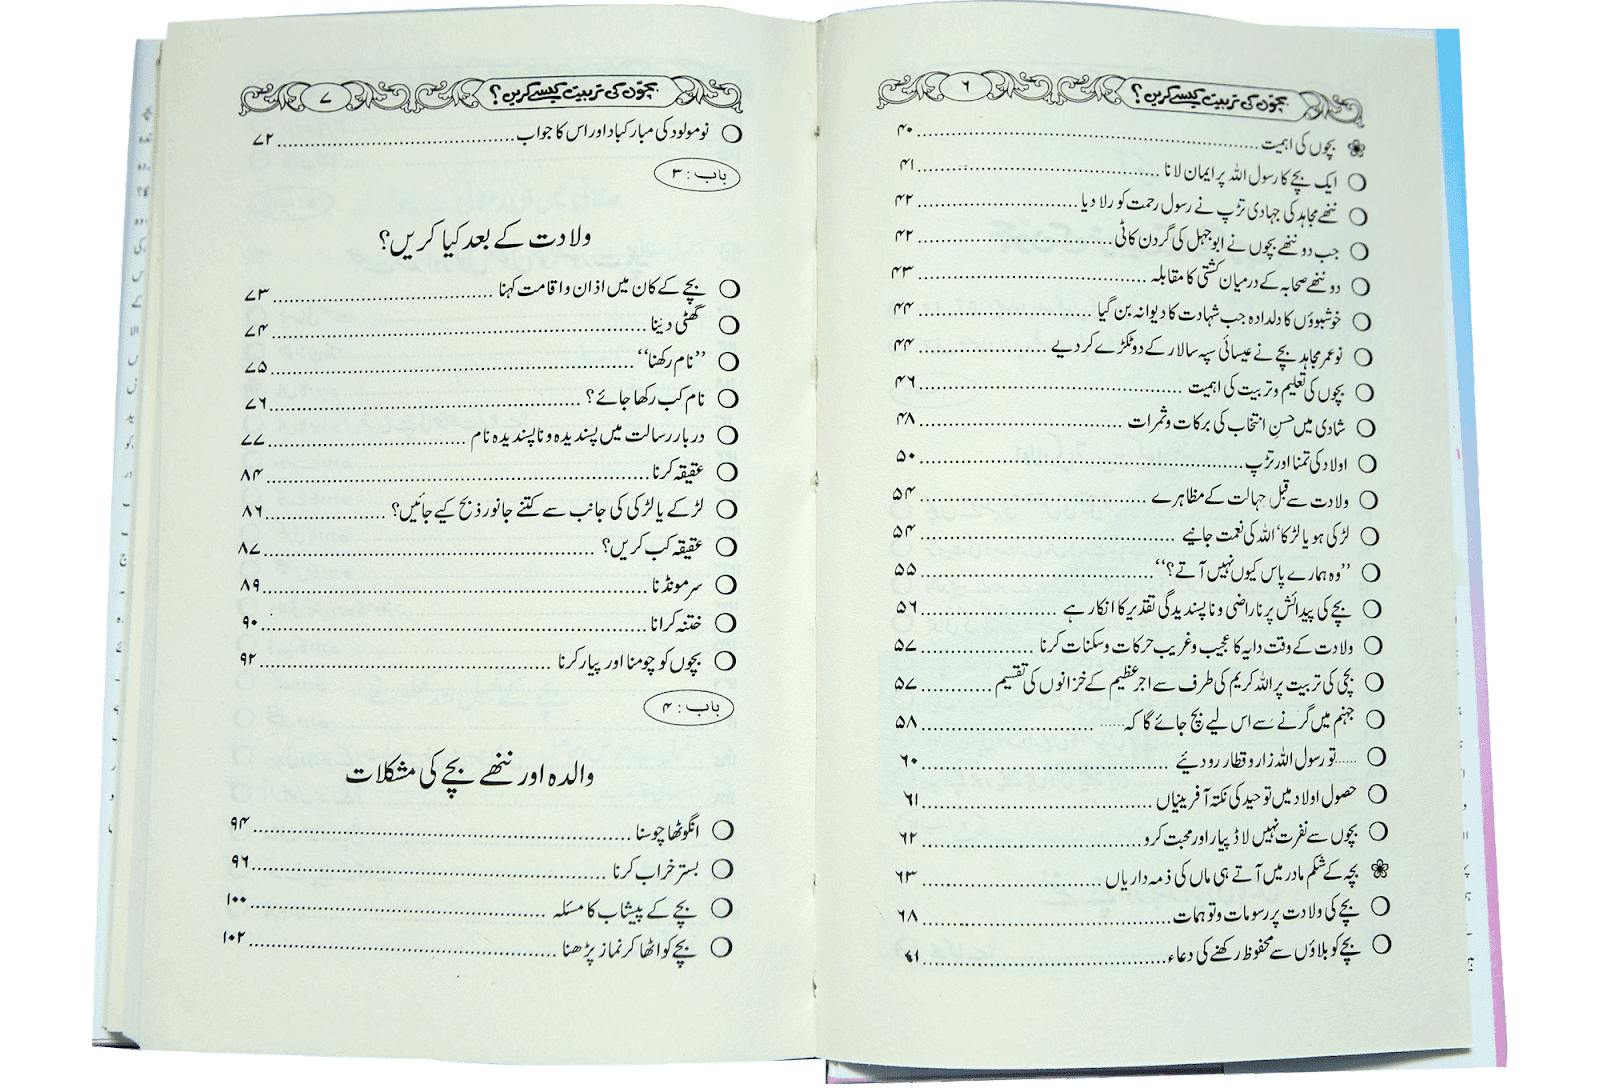 بچوں کی تربیت کیسے کریں؟ ۶
بچوں کی اہمیت ۴۰
ایک بچے کا رسول اللہ پر ایمان لانا ۴۱
ننھے مجاہد کی جہادی تڑپ نے رسول رحمت کو رلا دیا ۴۲
جب دو ننھے بچوں نے ابوجہل کی گردن کاٹی ۴۲
دو ننھے صحابہ کے درمیان کشتی کا مقابلہ ۴۳
خوشبوؤں کا دلدادہ جب شہادت کا دیوانہ بن گیا ۴۴
نوعمر مجاہد بچے نے عیسائی سپہ سالار کے دو ٹکڑے کر دیے ۴۴
بچوں کی تعلیم و تربیت کی اہمیت ۴۶
شادی میں حسنِ انتخاب کی برکات و ثمرات ۴۸
اولاد کی تمنا اور تڑپ ۵۰
ولادت سے قبل جہالت کے مظاہرے ۵۴
لڑکی ہو یا لڑکا‘ اللہ کی نعمت جانیے ۵۴
’’وہ ہمارے پاس کیوں نہیں آتے؟‘‘ ۵۵
بچے کی پیدائش پر ناراضی و ناپسندیدگی تقدیر کا انکار ہے ۵۶
ولادت کے وقت دایہ کا عجیب و غریب حرکات و سکنات کرنا ۵۷
بچی کی تربیت پر اللہ کریم کی طرف سے اجر عظیم کے خزانوں کی تقسیم ۵۷
جہنم میں گرنے سے اس لیے بچ جائے گا کہ...... ۵۸
......تو رسول اللہ زار و قطار رو دیئے ۶۰
حصول اولاد میں توحید کی نکتہ آفرینیاں ۶۱
بچوں سے نفرت نہیں لاڈ پیار اور محبت کرو ۶۲
بچہ کے شکم مادر میں آتے ہی ماں کی ذمہ داریاں ۶۳
بچے کی ولادت پر رسومات و توہمات ۶۸
بچے کو بلاؤں سے محفوظ رکھنے کی دعاء
بچوں کی تربیت کیسے کریں؟ ۷
نومولود کی مبارکباد اور اس کا جواب ۷۲
باب : ۳
ولادت کے بعد کیا کریں؟
بچے کے کان میں اذان و اقامت کہنا ۷۳
گھٹی دینا ۷۴
’’نام رکھنا‘‘ ۷۵
نام کب رکھا جائے؟ ۷۶
دربار رسالت میں پسندیدہ و ناپسندیدہ نام ۷۷
عقیقہ کرنا ۸۴
لڑکے یا لڑکی کی جانب سے کتنے جانور ذبح کیے جائیں؟ ۸۶
عقیقہ کب کریں؟ ۸۷
سر مونڈنا ۸۹
ختنہ کرانا ۹۰
بچوں کو چومنا اور پیار کرنا ۹۲
باب : ۴
والدہ اور ننھے بچے کی مشکلات
انگوٹھا چوسنا ۹۴
بستر خراب کرنا ۹۶
بچے کے پیشاب کا مسئلہ ۱۰۰
بچے کو اٹھا کر نماز پڑھنا ۱۰۲